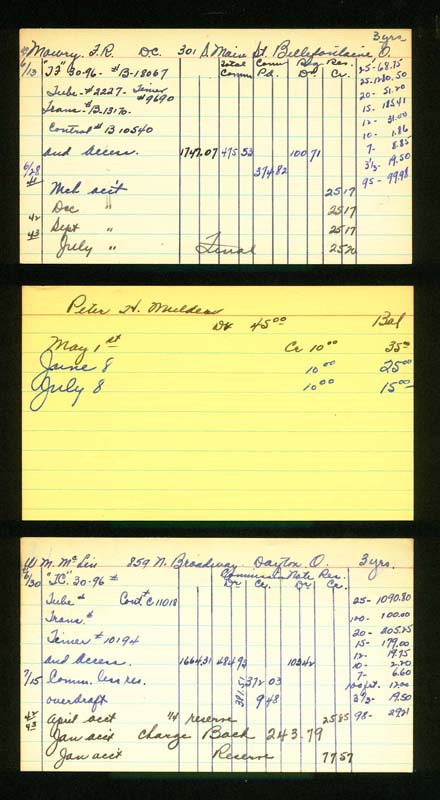 3 yrs
Mowry, F.R. D.C. 301 S. Main St. Bellefontaine, O.
Total Comm Res. Res.
Comm Pd. Dr. Cr.
6/13 "TF" 30-96- #B-18067 25- 68.75
25- 1280.50
Tube- #2227- Timer #9690 20- 51.20
Trans. #B-13170- 15- 185.41
Control # B 10540 12- 31.00
10- 1.86
and Access. 1747.07 475 53 100 71 7- 8.85
6/28 374 82 3 1/2- 19.50
41 Mch acc't 25 17 95- 99.98
Dec " 25 17
42 Sept " 25 17
43 July " Final 25 20
Peter H. Mulder
Dr 45 00 Bal
May 1st Cr 10 00 35 00
June 8 10 00 25 00
July 8 10 00 15 00
W. M. McLin 859 N. Broadway Dayton, O. 3 yrs.
Commission Note Res.
Dr. Cr. Dr. Cr.
6/30 "TC" 30-96 #
Tube # Cont # C11018 25- 1090.80
Trans. # 100- 100.00
Timer # 10194 20- 205.25
15- 179.00
and Access. 1664.31 484 95 103 42 12- 19.75
10- 2.20
7/15 Comm. less res. 381.51 372 03 7- 6.60
100 ft. 12.00
overdraft 9 48 3 1/2- 19.50
42 April acc't 1/4 reserve 25 85 98- 29.21
43 Jan acc't Charge Back 243.79
Jan acc't Reserve 77 57